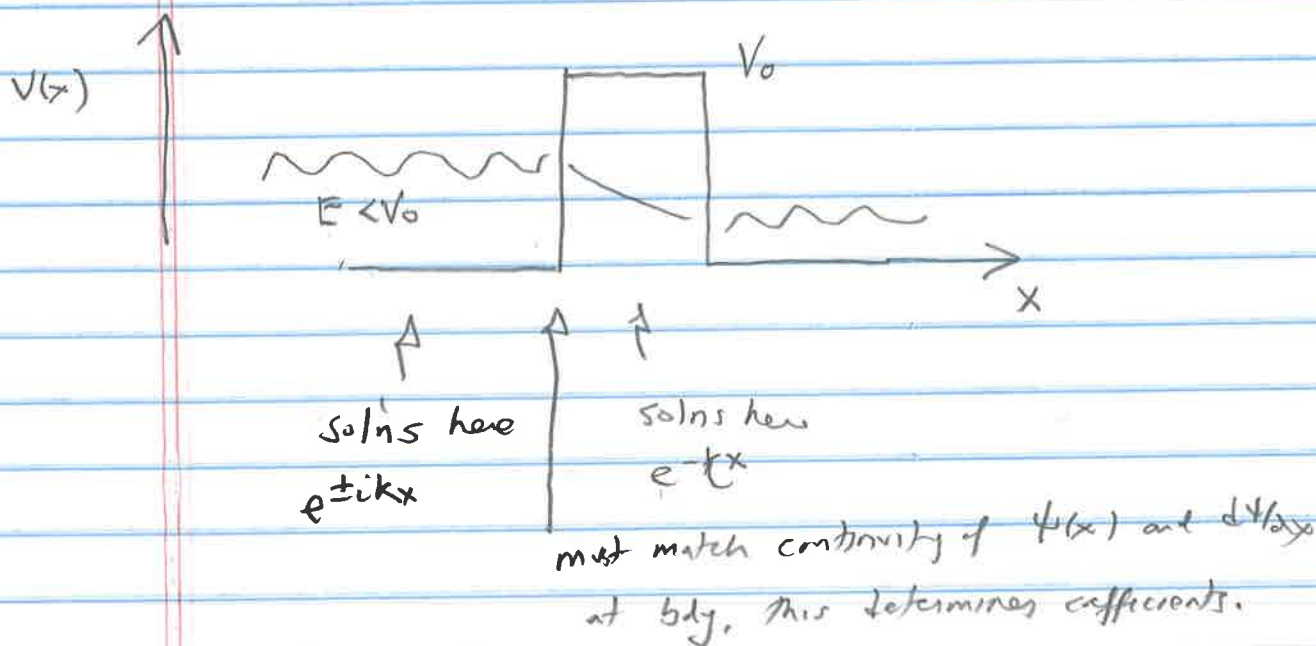 V(x)
V₀
E < V₀
x
sol'ns here
solns here
e^{±ikx}
e^{-kx}
must match continuity of ψ(x) and dψ/dx
at bdy, this determines cefficients.